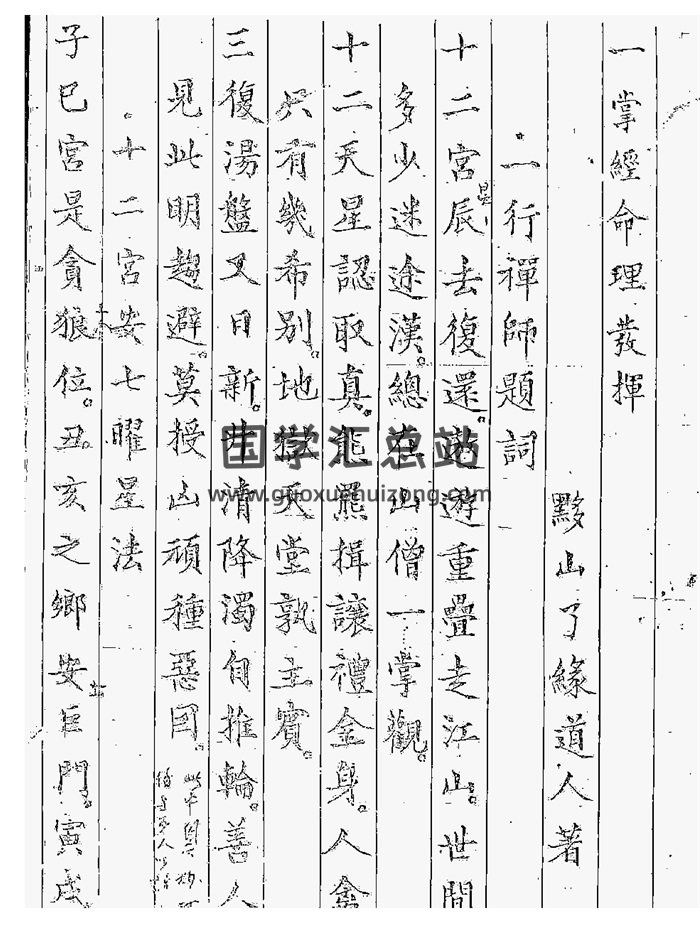 一掌經命理發揮
黟山了緣道人著
一行禪師題詞
十二宮辰去復還。遨遊重疊走江山。世間
星
多少迷途漢。總在山僧一掌觀。
十二天星認取真。能羆揖讓禮金身。人禽
只有幾希別。地獄天堂孰主賓。
三復湯盤又日新。井清降濁自推輪。善人
見此明趨避。莫授凶頑種惡因。
十二宮安七曜星法
子巳宮是貪狼位。丑亥之鄉安巨門。寅戌
国学汇总站
www.guoxuehuizong.com